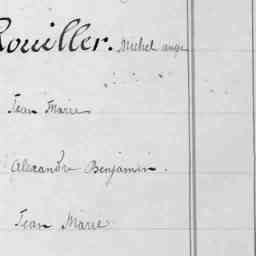 Rouiller. Michel ange
Jean Marie
Alexandre Benjamin.
Jean Marie